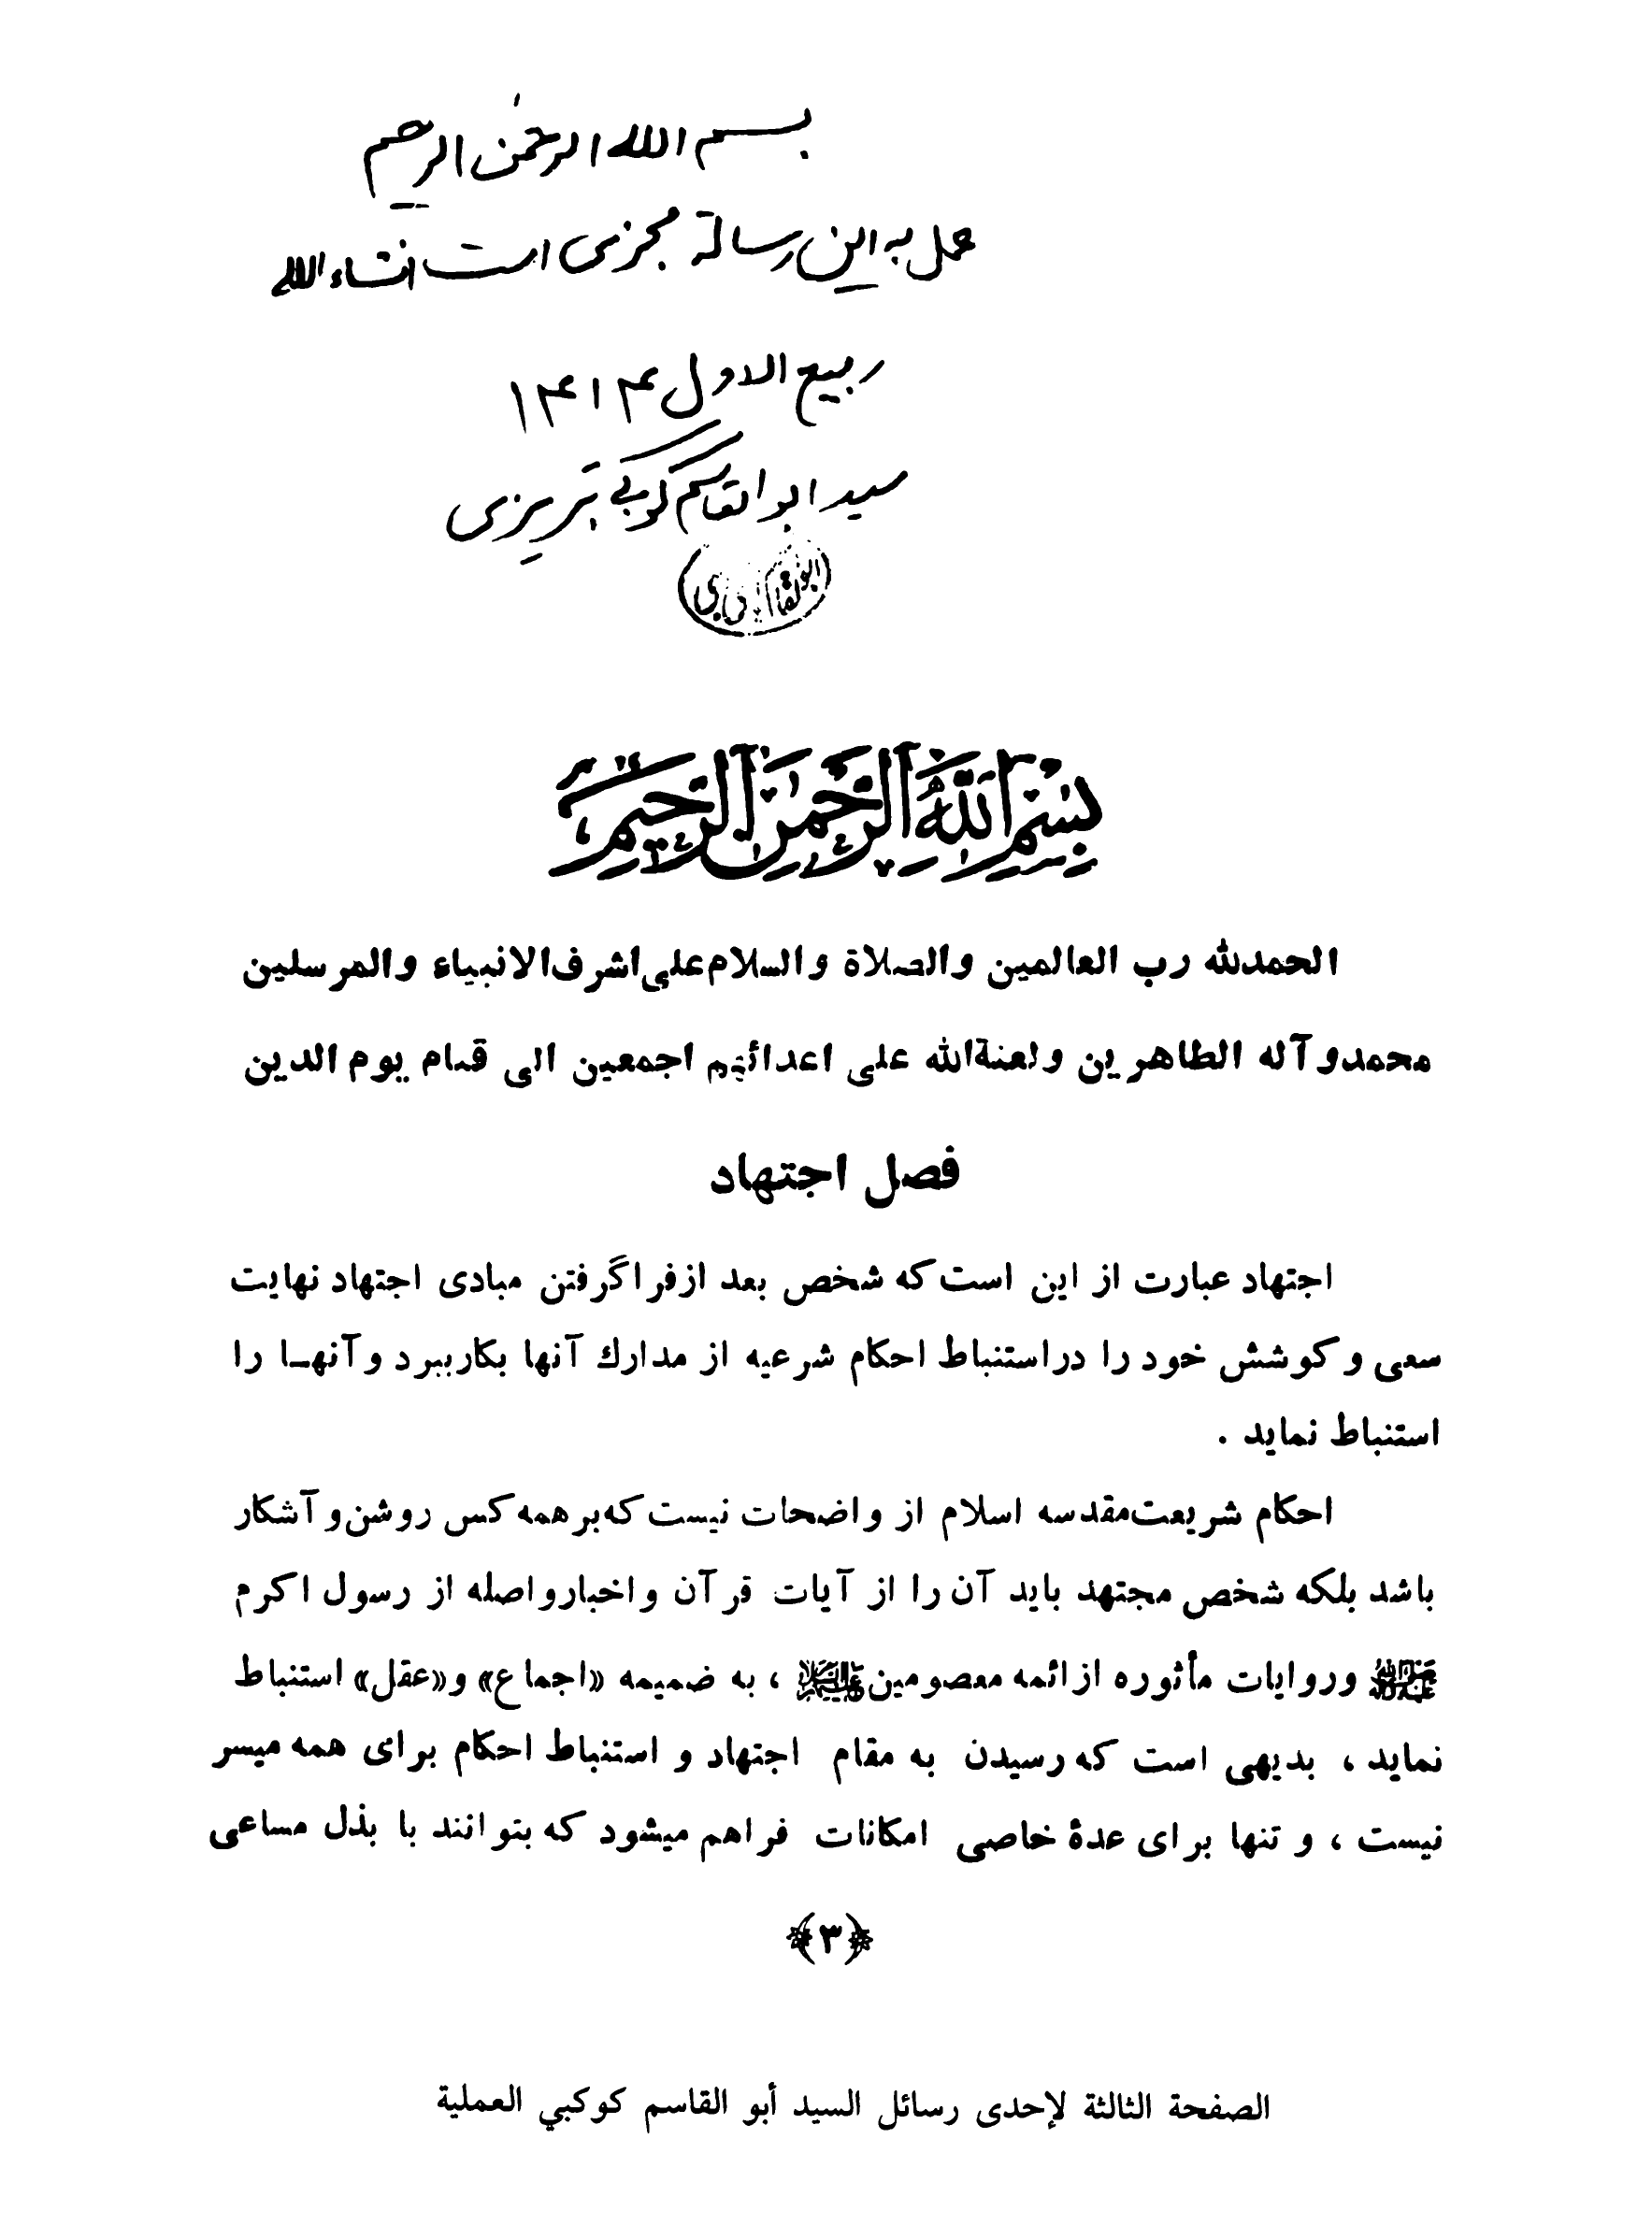 بسم الله الرحمن الرحیم
عمل به این رسالة مجزی است انشاء الله
ربیع الاول ۱۴۱۴
سید ابوالقاسم کوکبی تبریزی
بِسْمِ اللَّهِ الرَّحْمَٰنِ الرَّحِيمِ
الحمدلله رب العالمین والصلاة والسلام علی اشرف الانبیاء والمرسلین
محمد وآله الطاهرین ولعنةالله علی اعدائهم اجمعین الی قیام یوم الدین
فصل اجتهاد
اجتهاد عبارت از این است که شخص بعد ازفراگرفتن مبادی اجتهاد نهایت
سعی و کوشش خود را دراستنباط احکام شرعیه از مدارك آنها بکارببرد و آنهـا را
استنباط نماید .
احکام شریعت‌مقدسه اسلام از واضحات نیست که‌برهمه کس روشن‌و آشکار
باشد بلکه شخص مجتهد باید آن را از آیات قرآن و اخبارواصله از رسول اکرم
ﷺ وروایات مأثوره ازائمه معصومین علیهم السلام ، به ضمیمه «اجماع» و«عقل» استنباط
نماید ، بدیهی است که رسیدن به مقام اجتهاد و استنباط احکام برای همه میسر
نیست ، و تنها برای عدهٔ خاصی امکانات فراهم میشود که بتوانند با بذل مساعی
﴿۳﴾
الصفحة الثالثة لإحدى رسائل السيد أبو القاسم كوكبي العملية